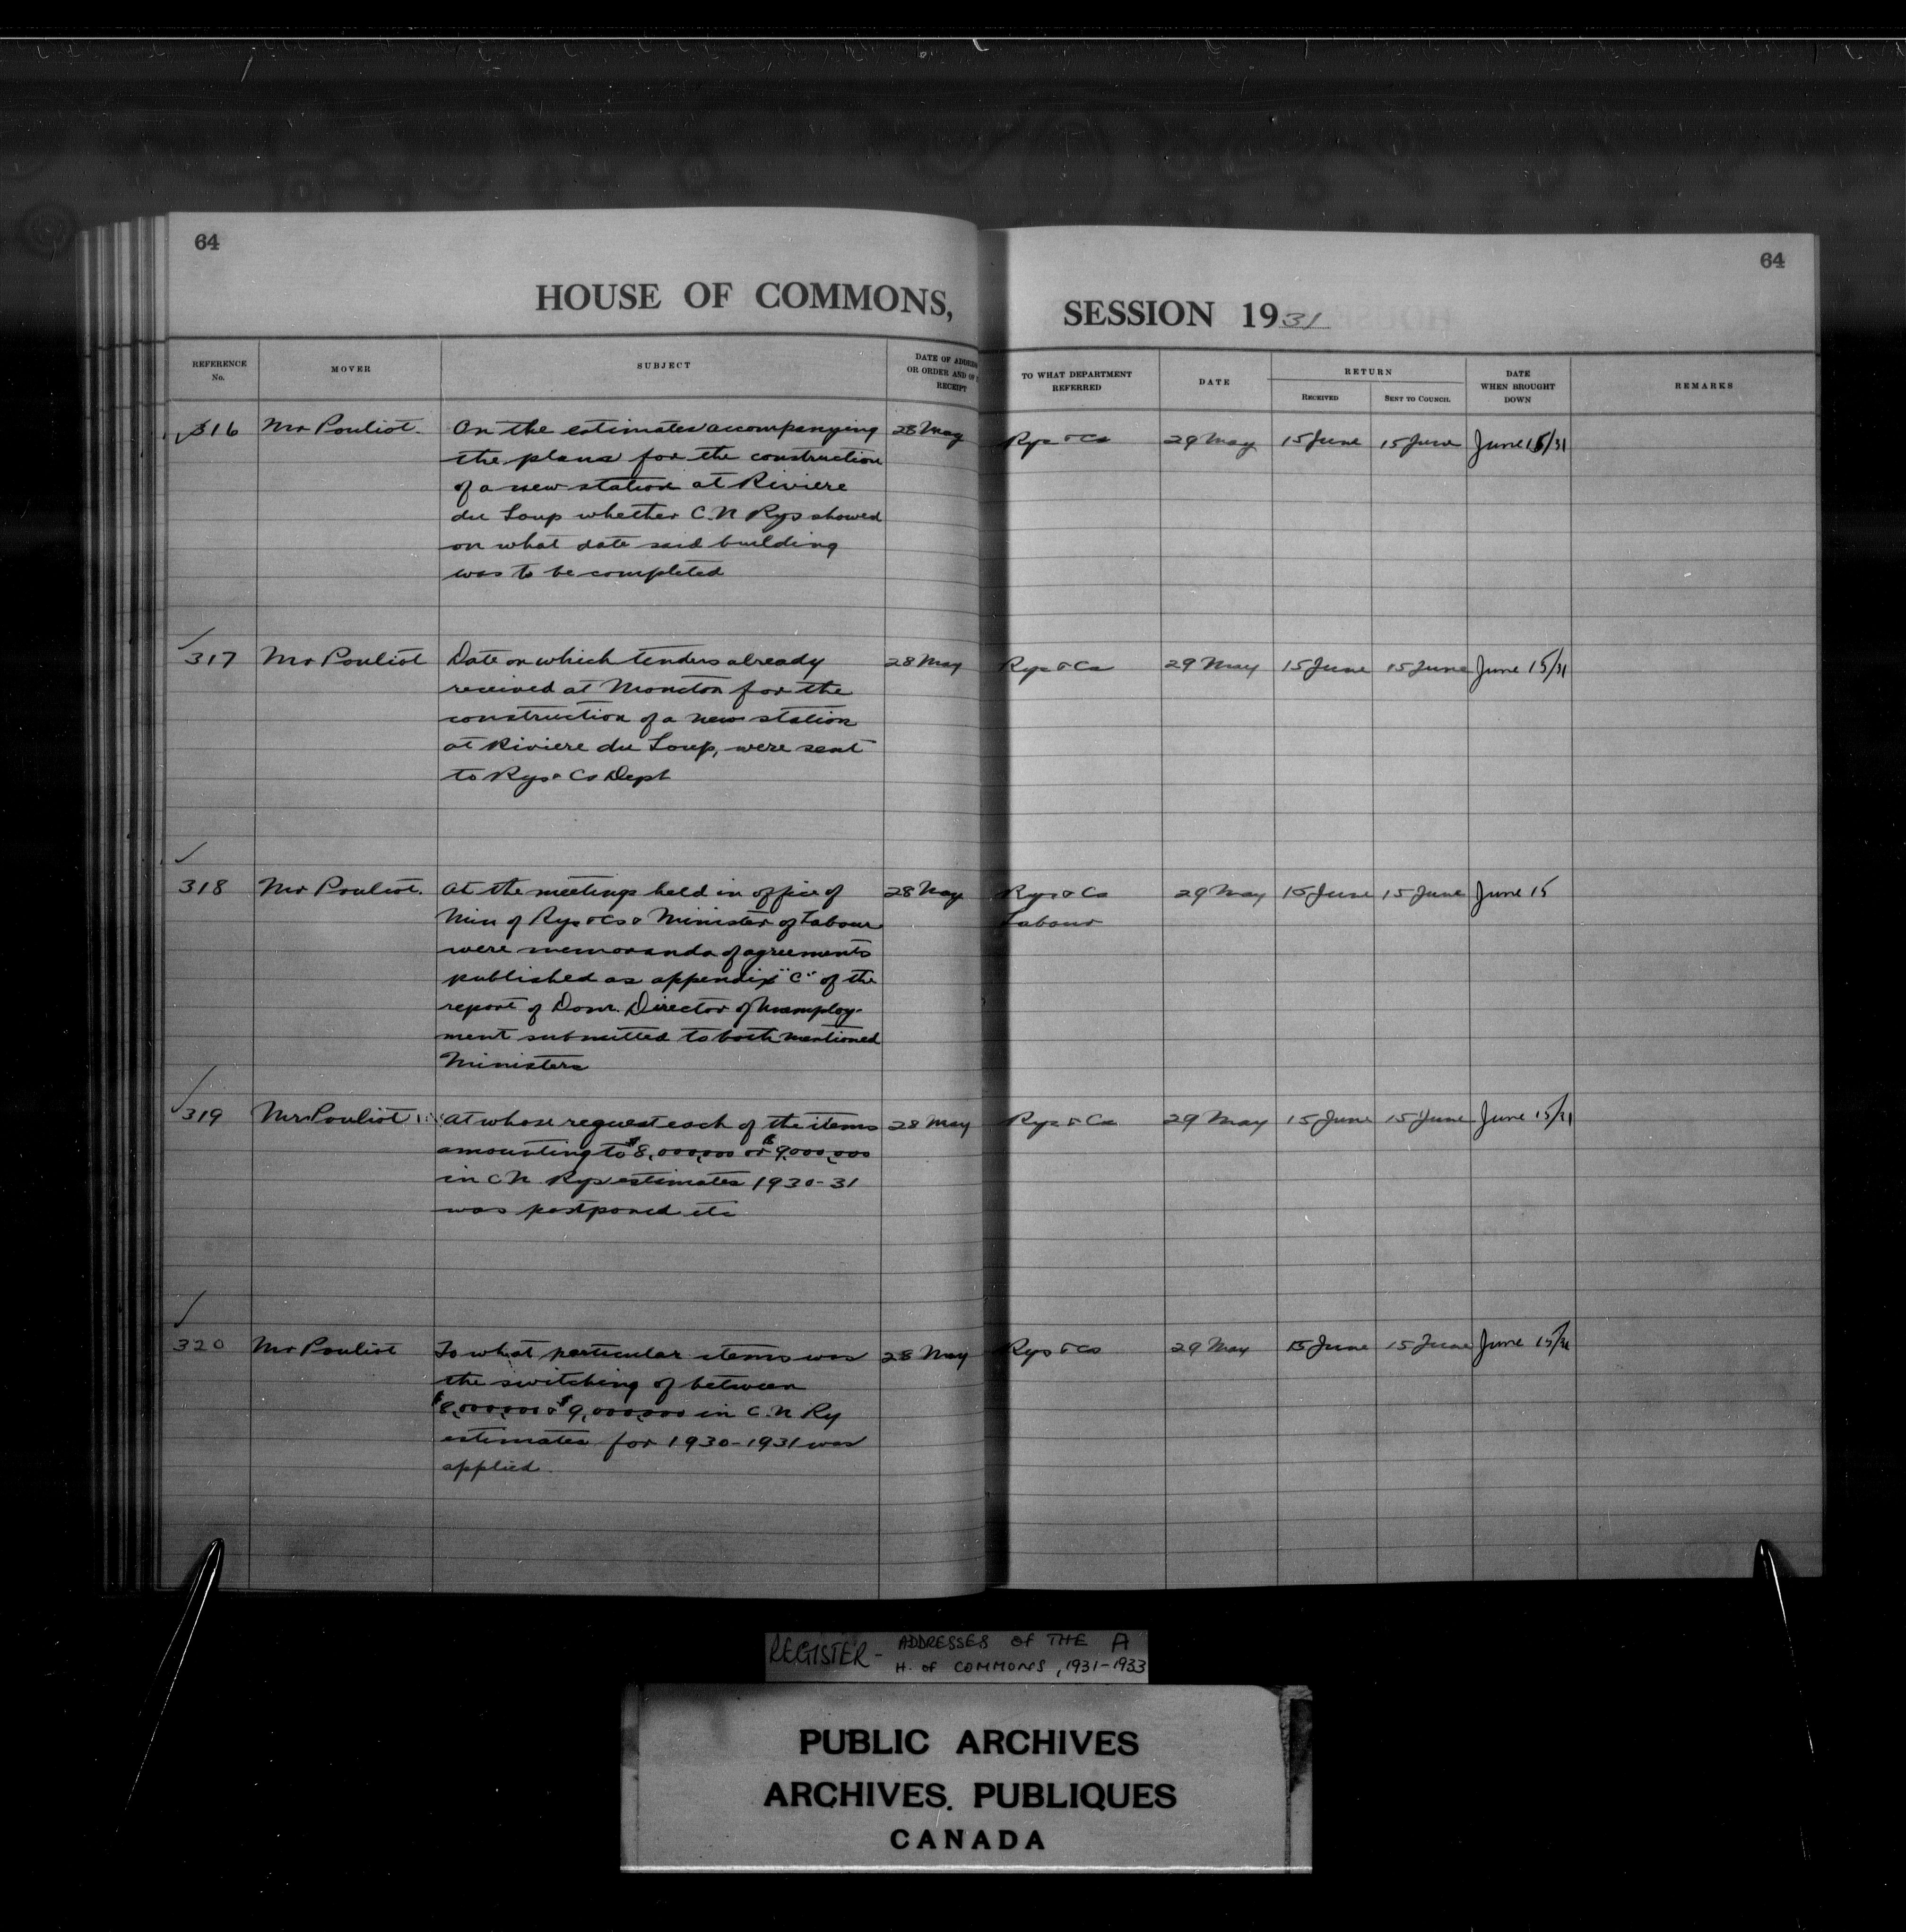 64
64
HOUSE OF COMMONS,
SESSION 1931
REFERENCE No.
MOVER
SUBJECT
DATE OF ADDRESS OR ORDER AND OF RECEIPT
TO WHAT DEPARTMENT REFERRED
DATE
RETURN
RECEIVED
SENT TO COUNCIL
DATE WHEN BROUGHT DOWN
REMARKS
316 Mr Pouliot. On the estimates accompanying 28 May Rys & Cs 29 May 15 June 15 June June 15/31
the plans for the construction
of a new station at Riviere
du Loup whether C.N Rys showed
on what date said building
was to be completed
317 Mr Pouliot Date on which tenders already 28 May Rys & Cs 29 May 15 June 15 June June 15/31
received at Moncton for the
construction of a new station
at Riviere du Loup, were sent
to Rys & Cs Dept
318 Mr Pouliot. At the meetings held in office of 28 May Rys & Cs 29 May 15 June 15 June June 15
Min of Rys & Cs & Minister of Labour Labour
were memoranda of agreements
published as appendix "C" of the
report of Domn. Director of Unemploy-
ment submitted to both mentioned
Ministers
319 Mr Pouliot At whose request each of the items 28 May Rys & Cs 29 May 15 June 15 June June 15/31
amounting to $8,000,000 or $9,000,000
in C N Rys estimates 1930-31
was postponed etc
320 Mr Pouliot To what particular items was 28 May Rys & Cs 29 May 15 June 15 June June 15/31
the switching of between
$8,000,000 & $9,000,000 in C.N Ry
estimates for 1930-1931 was
applied.
REGISTER - ADDRESSES OF THE A
H. OF COMMONS, 1931-1933
PUBLIC ARCHIVES
ARCHIVES PUBLIQUES
CANADA